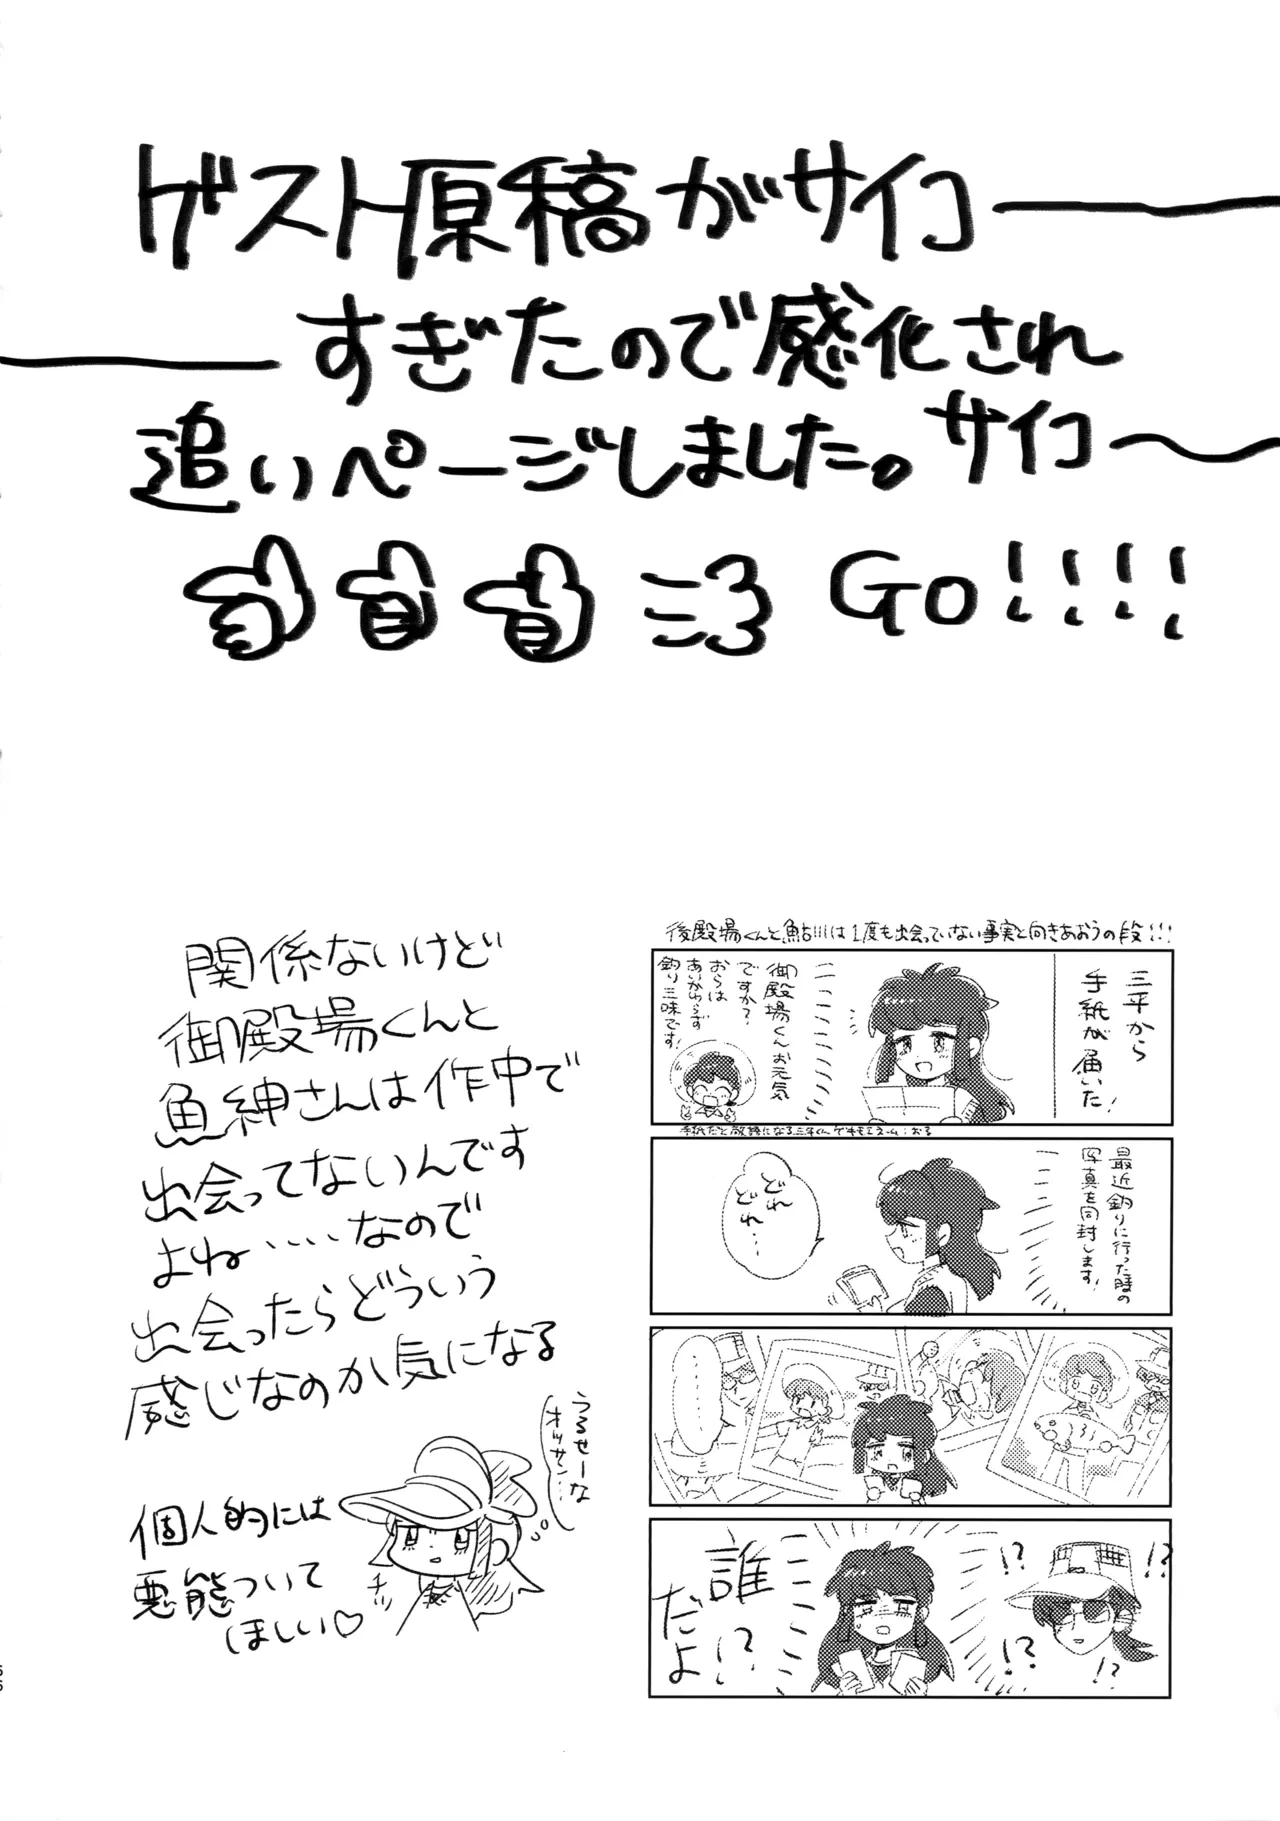 ゲスト原稿がサイコ――
――すぎたので感化され
追いページしました。サイコ〜
GO!!!!
後殿場くんと鮎川は1度も出会っていない事実と向きあおうの段!!!
三平から
手紙が届いた!
御殿場くんお元気
ですか?
おらは
あいかわらず
釣り三昧です!
手紙だと敬語になる三平くんでキモエスーム:おる
最近釣りに行った時の
写真を同封します!
どれ
どれ…
………
誰
だよ!?
!?
!?
!?
!?
関係ないけど
御殿場くんと
魚紳さんは作中で
出会ってないんです
よね‥‥なので
出会ったらどういう
感じなのか気になる
うるせーな
オッサン…
チッ
個人的には
悪態ついて
ほしい♡